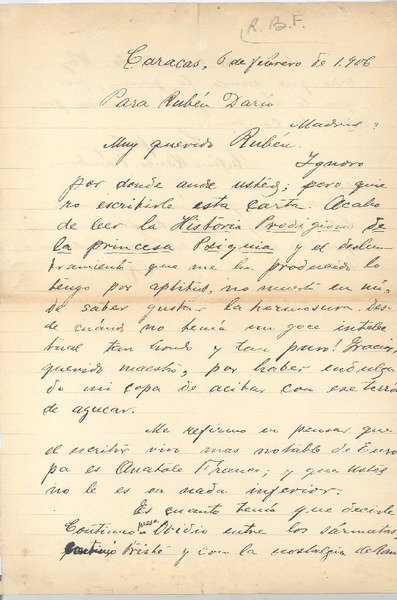 (R. B. F.
Caracas, 6 de febrero de 1.906
Para Rubén Darío
Madrid.
Muy querido Rubén.
Ignoro
por donde anda usted; pero quie
ro escribirle esta carta. Acabo
de leer la Historia Prodigiosa de
la princesa Psiquia y el deslum
bramiento que me ha producido lo
tengo por aptitud, no muerta en mí,
de saber gustar la hermosura. Des
de cuándo no tenía un goce intelec
tual tan hondo y tan puro! Gracias,
querido maestro, por haber endulza
do mi copa de acibar con ese terrón
de azucar.
Me reafirmo en pensar que
el escritor vivo mas notable de Euro
pa es Anatole France; y que usted
no le es en nada inferior.
Es cuanto tenía que decirle
Continuo pues Ovidio entre los sármatas,
triste y con la nostalgia de Rom